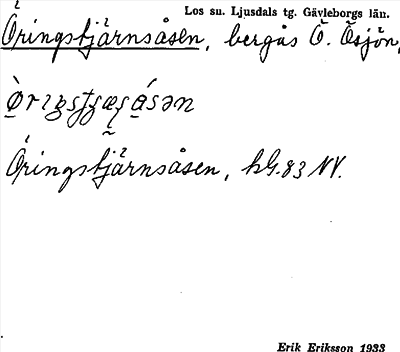 Los su. Ljusdals tg. Gävleborgs län.
Öringstjärnsåsen, bergås Ö. Ösjön,
Öringstjärnsåsen, hG. 83 NV.
Erik Eriksson 1933